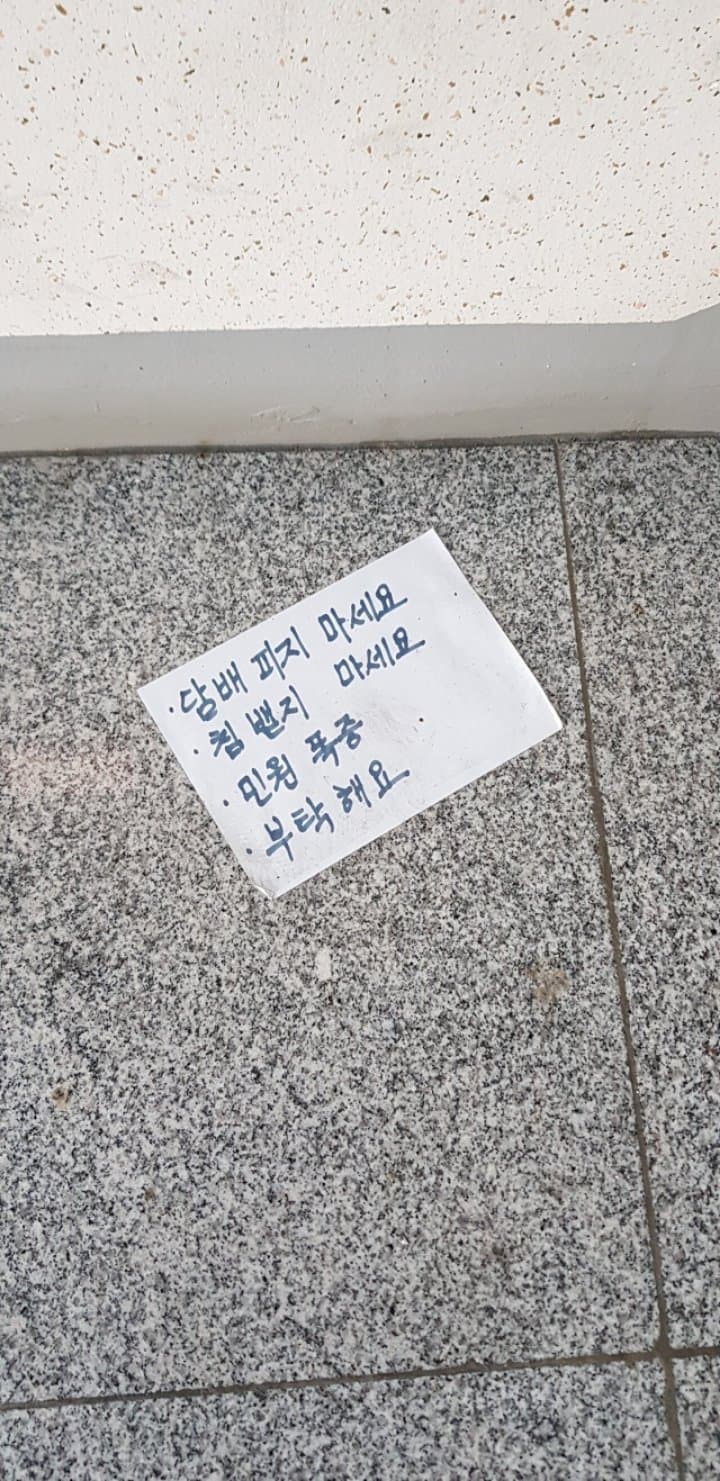 ·담배 피지 마세요
·침 밷지 마세요
·민원 폭증
·부탁해요